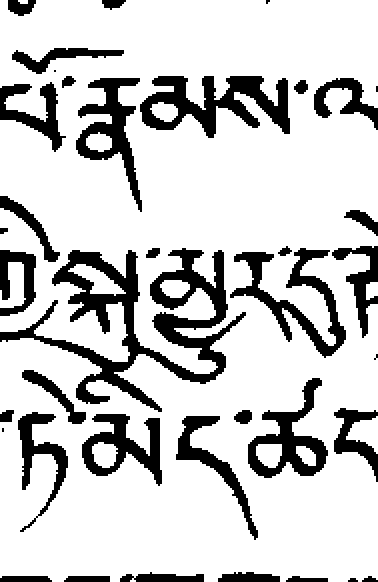 པོ་རྣམས་ལ
ཀྱི་སྐུ་མྱུར་དུ
ཏེ་མེད་ཚད